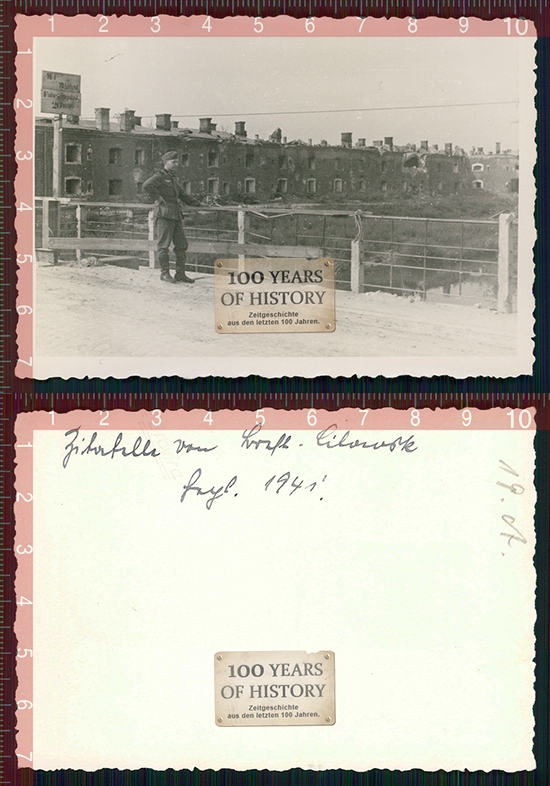 1 2 3 4 5 6 7 8 9 10
2
3
4
5
6
7
100 YEARS
OF HISTORY
Zeitgeschichte
aus den letzten 100 Jahren.
1 2 3 4 5 6 7 8 9 10
2
3
4
5
6
7
Zitatelle von Brest-Litowsk
Sept. 1941.
100 YEARS
OF HISTORY
Zeitgeschichte
aus den letzten 100 Jahren.